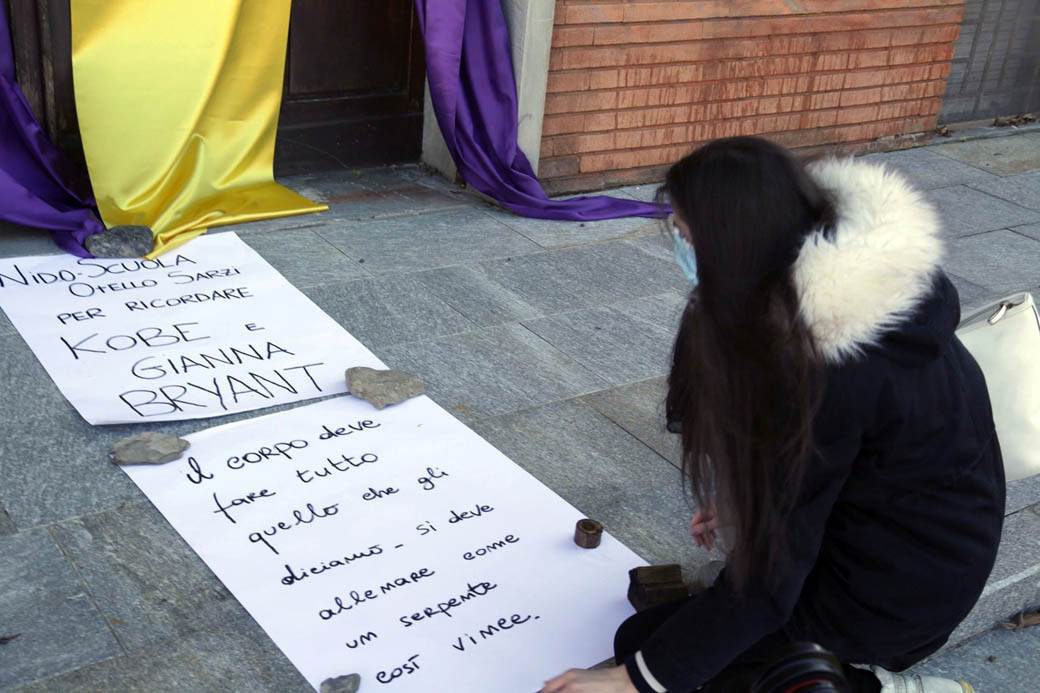 NIDO-SCUOLA
OTELLO SARZI
PER RICORDARE
KOBE E
GIANNA
BRYANT
Il corpo deve
fare tutto
quello che gli
diciamo - si deve
allenare come
un serpente
così vince.